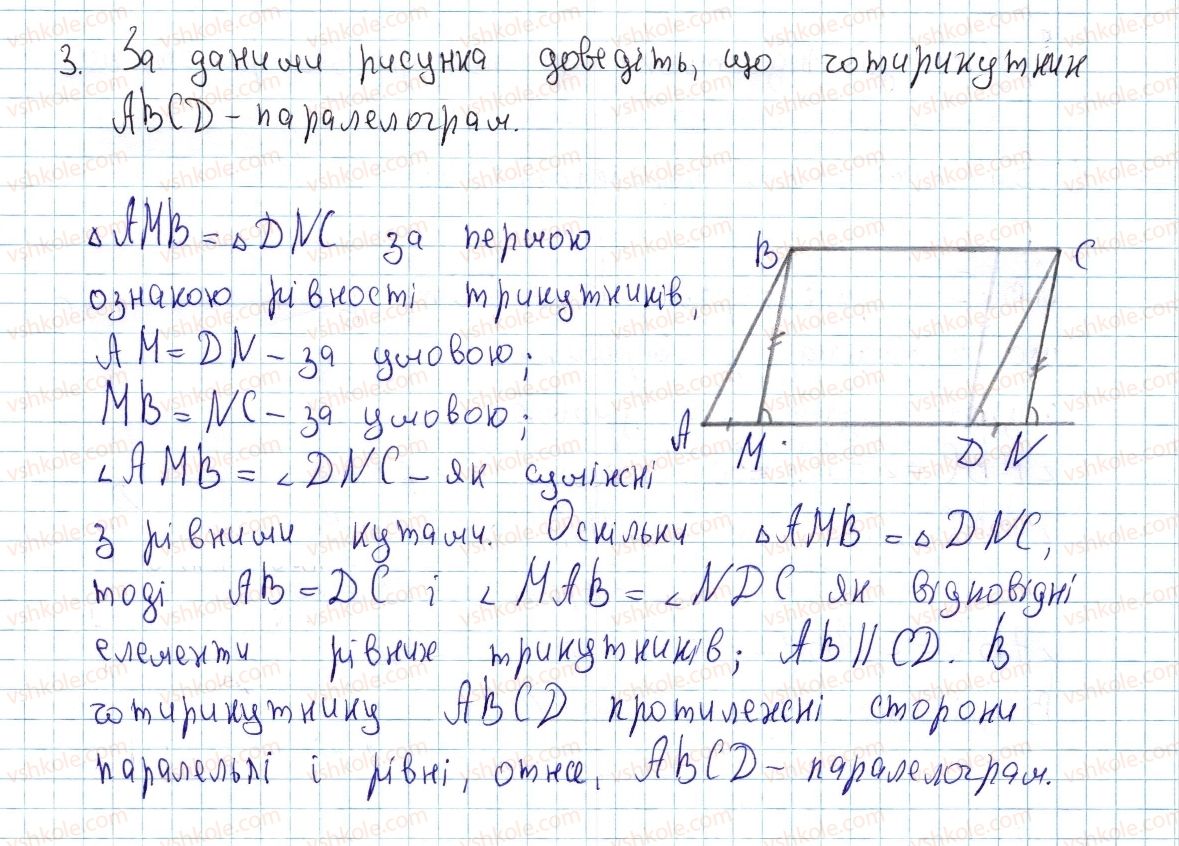 3. За даними рисунка доведіть, що чотирикутник
ABCD - паралелограм.
△AMB = △DNC за першою
ознакою рівності трикутників,
AM = DN - за умовою;
MB = NC - за умовою;
∠AMB = ∠DNC - як суміжні
з рівними кутами. Оскільки △AMB = △DNC,
тоді AB = DC і ∠MAB = ∠NDC як відповідні
елементи рівних трикутників; AB || CD. В
чотирикутнику ABCD протилежні сторони
паралельні і рівні, отже, ABCD - паралелограм.
B C
A M D N